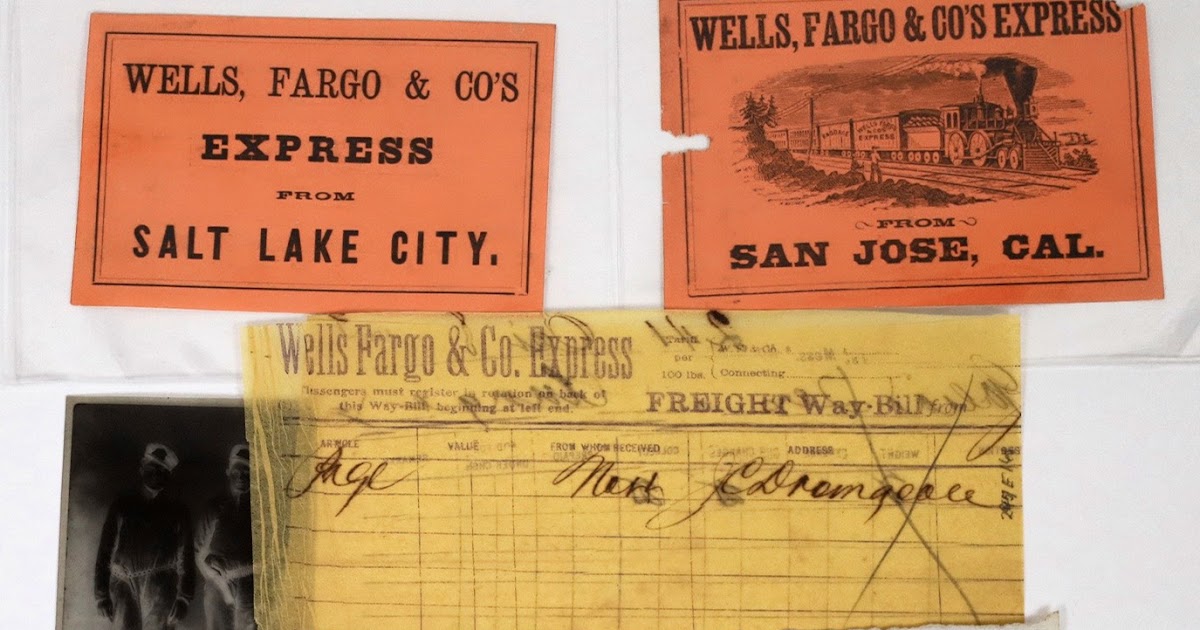 WELLS, FARGO & CO'S
EXPRESS
FROM
SALT LAKE CITY.
WELLS, FARGO & CO'S EXPRESS
WELLS FARGO
& CO
EXPRESS
FROM
SAN JOSE, CAL.
Wells Fargo & Co. Express
Passengers must register in rotation on back of
this Way-Bill, beginning at left end.
Tariff
per
100 lbs.
Connecting
FREIGHT Way-Bill from
ARTICLE VALUE FROM WHOM RECEIVED ADDRESS
Pkge J C Dromgoole